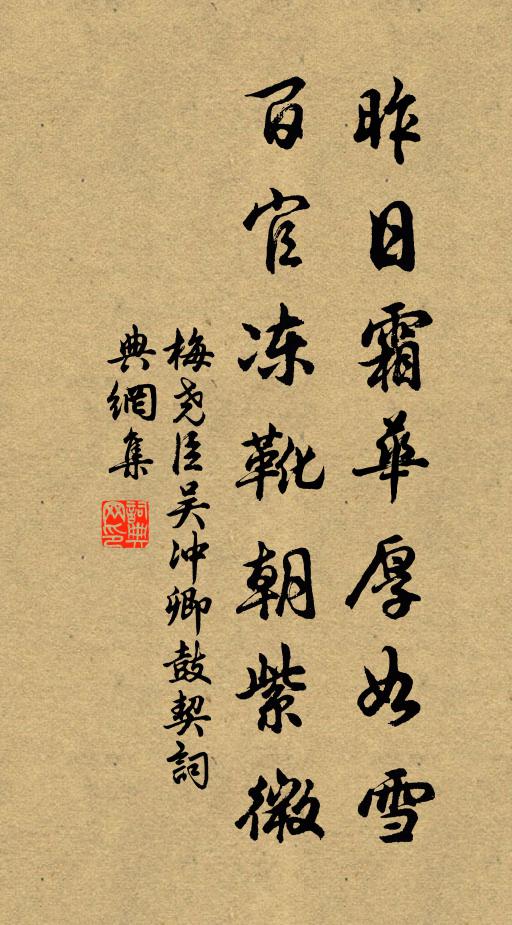 昨日霜華厚如雪
百官冻靴朝紫微
梅尧臣吴冲卿鼓契詞
典網集
詞典網印